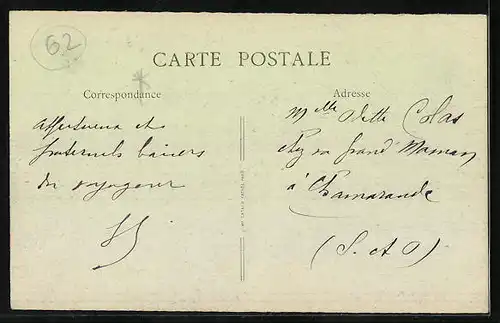 62
CARTE POSTALE
Correspondance
Adresse
affectueux et
fraternels baisers
du voyageur
Mlle Odette Colas
chez sa Grand' Maman
à Chamarande
(S. et O)